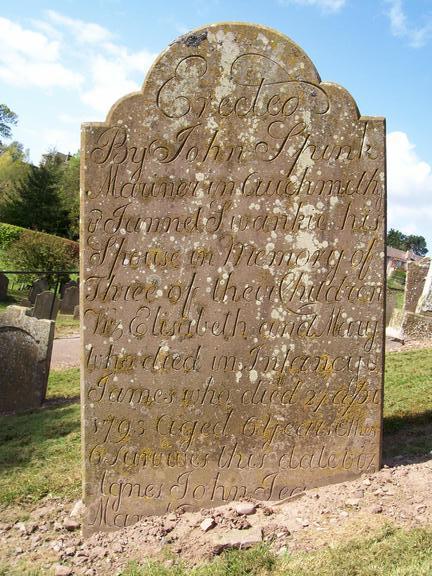 Erected
By John Spink
Mariner in Auchmith
& Jannet Swankie his
Spouse in Memory of
Three of their Children
Viz Elisabeth and Mary
who died in Infancy &
James who died 27 apr
1795 Aged 6
this date viz
Agnes John